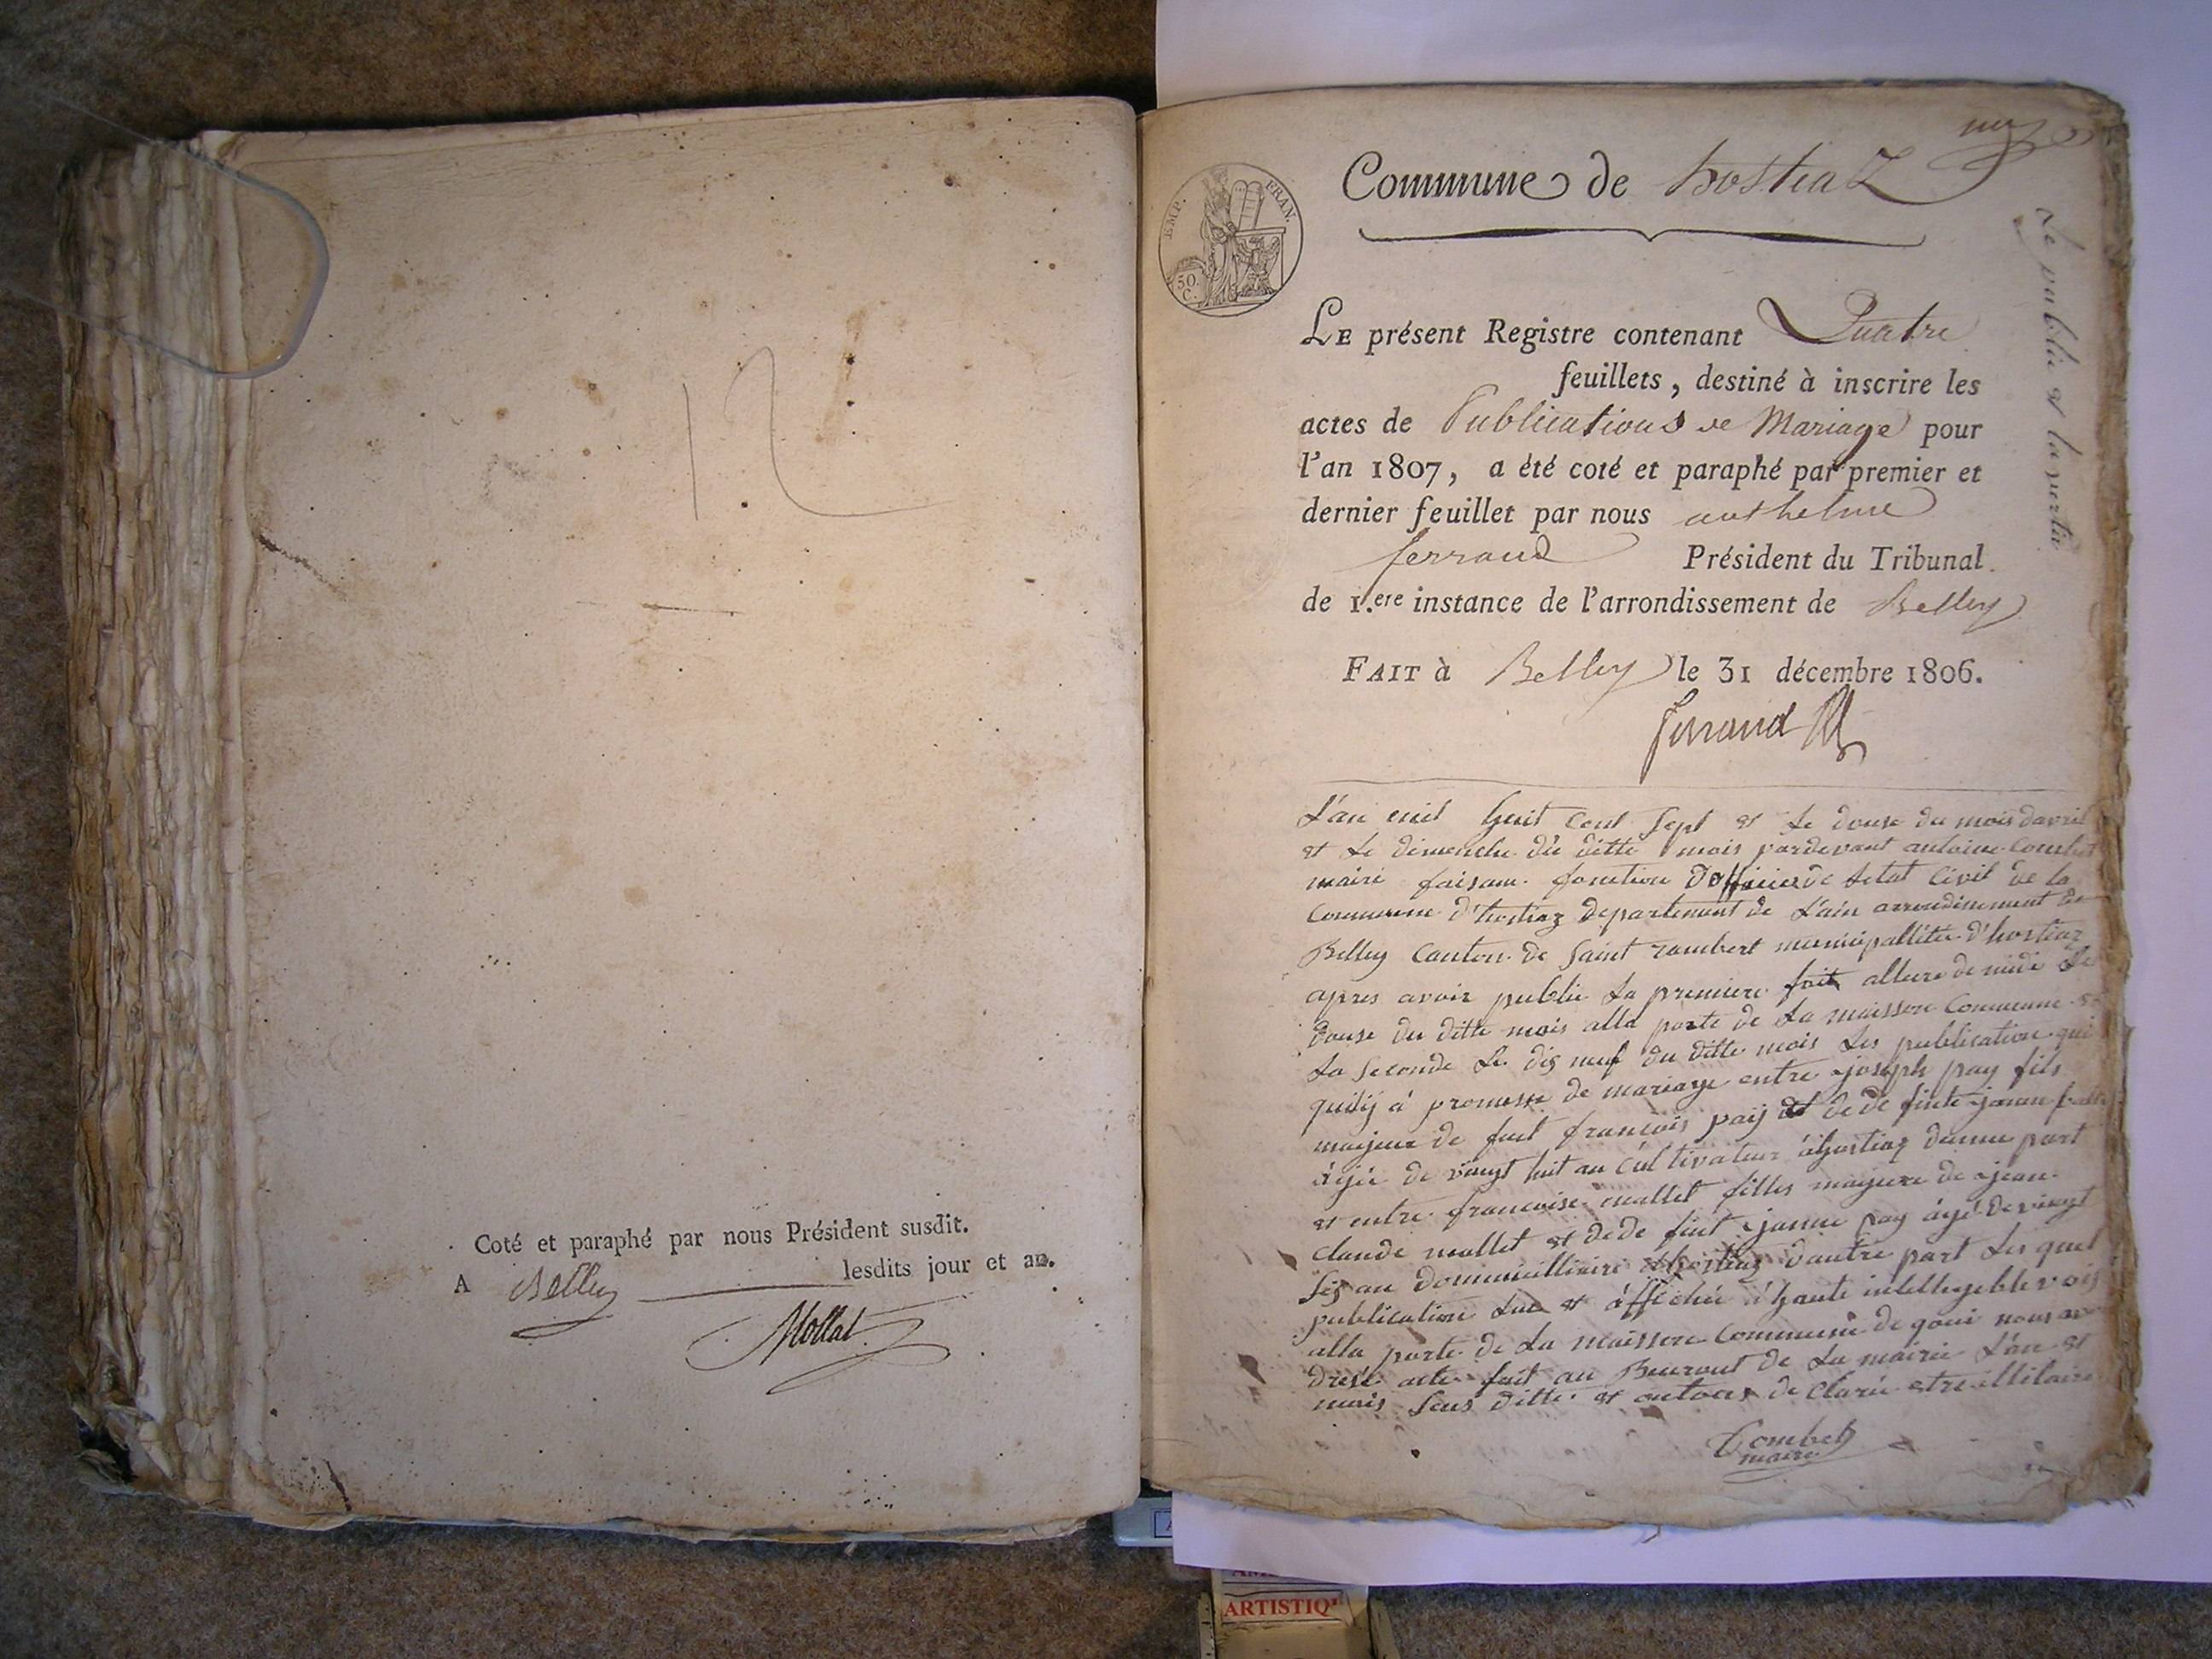 12
Coté et paraphé par nous Président susdit.
A Belley lesdits jour et an.
Mollat
Commune de hostiaz
EMP. FRAN.
50.
C.
LE présent Registre contenant Quatre
feuillets, destiné à inscrire les
actes de Publications de Mariage pour
l'an 1807, a été coté et paraphé par premier et
dernier feuillet par nous anthelme
ferrand Président du Tribunal
de 1.ere instance de l'arrondissement de Belley
FAIT à Belley le 31 décembre 1806.
ferrand
L'an mil huit cent sept et le douse du mois davril
et le dimenche du ditte mois pardevant antoine Combet
maire faisant fonction d'officier de letat Civil de la
Commune d'hostiaz departement de L'ain arrondissement de
Belley Canton de Saint rambert municipallitée d'hostiaz
apres avoir publie La premiere fois alleure de midi Le
douse du ditte mois alla porte de La maisson Commune et
La Seconde Le dis neuf du ditte mois Les publication qui
quilij a promesse de mariage entre joseph pay fils
majeur de fut francois paij et de de finte
àjée de vingt huit an Cultivateur à hostiaz dunne part
et entre francoise mallet filles majeure de jean
Claude mallet et de de fint janne pay àjé de vingt
Sis an dommicilliaire à hostiaz dautre part Les quel
publication Lue et àffichée à haute intellegeble vois
alla porte de La maisson Commune de quoi nous av
dresé acte fait au Beuraut de La mairie L'an et
mois Sus ditte et de Clarée estre illitaire
Combet
maire
Le publie et la
ARTISTIQ